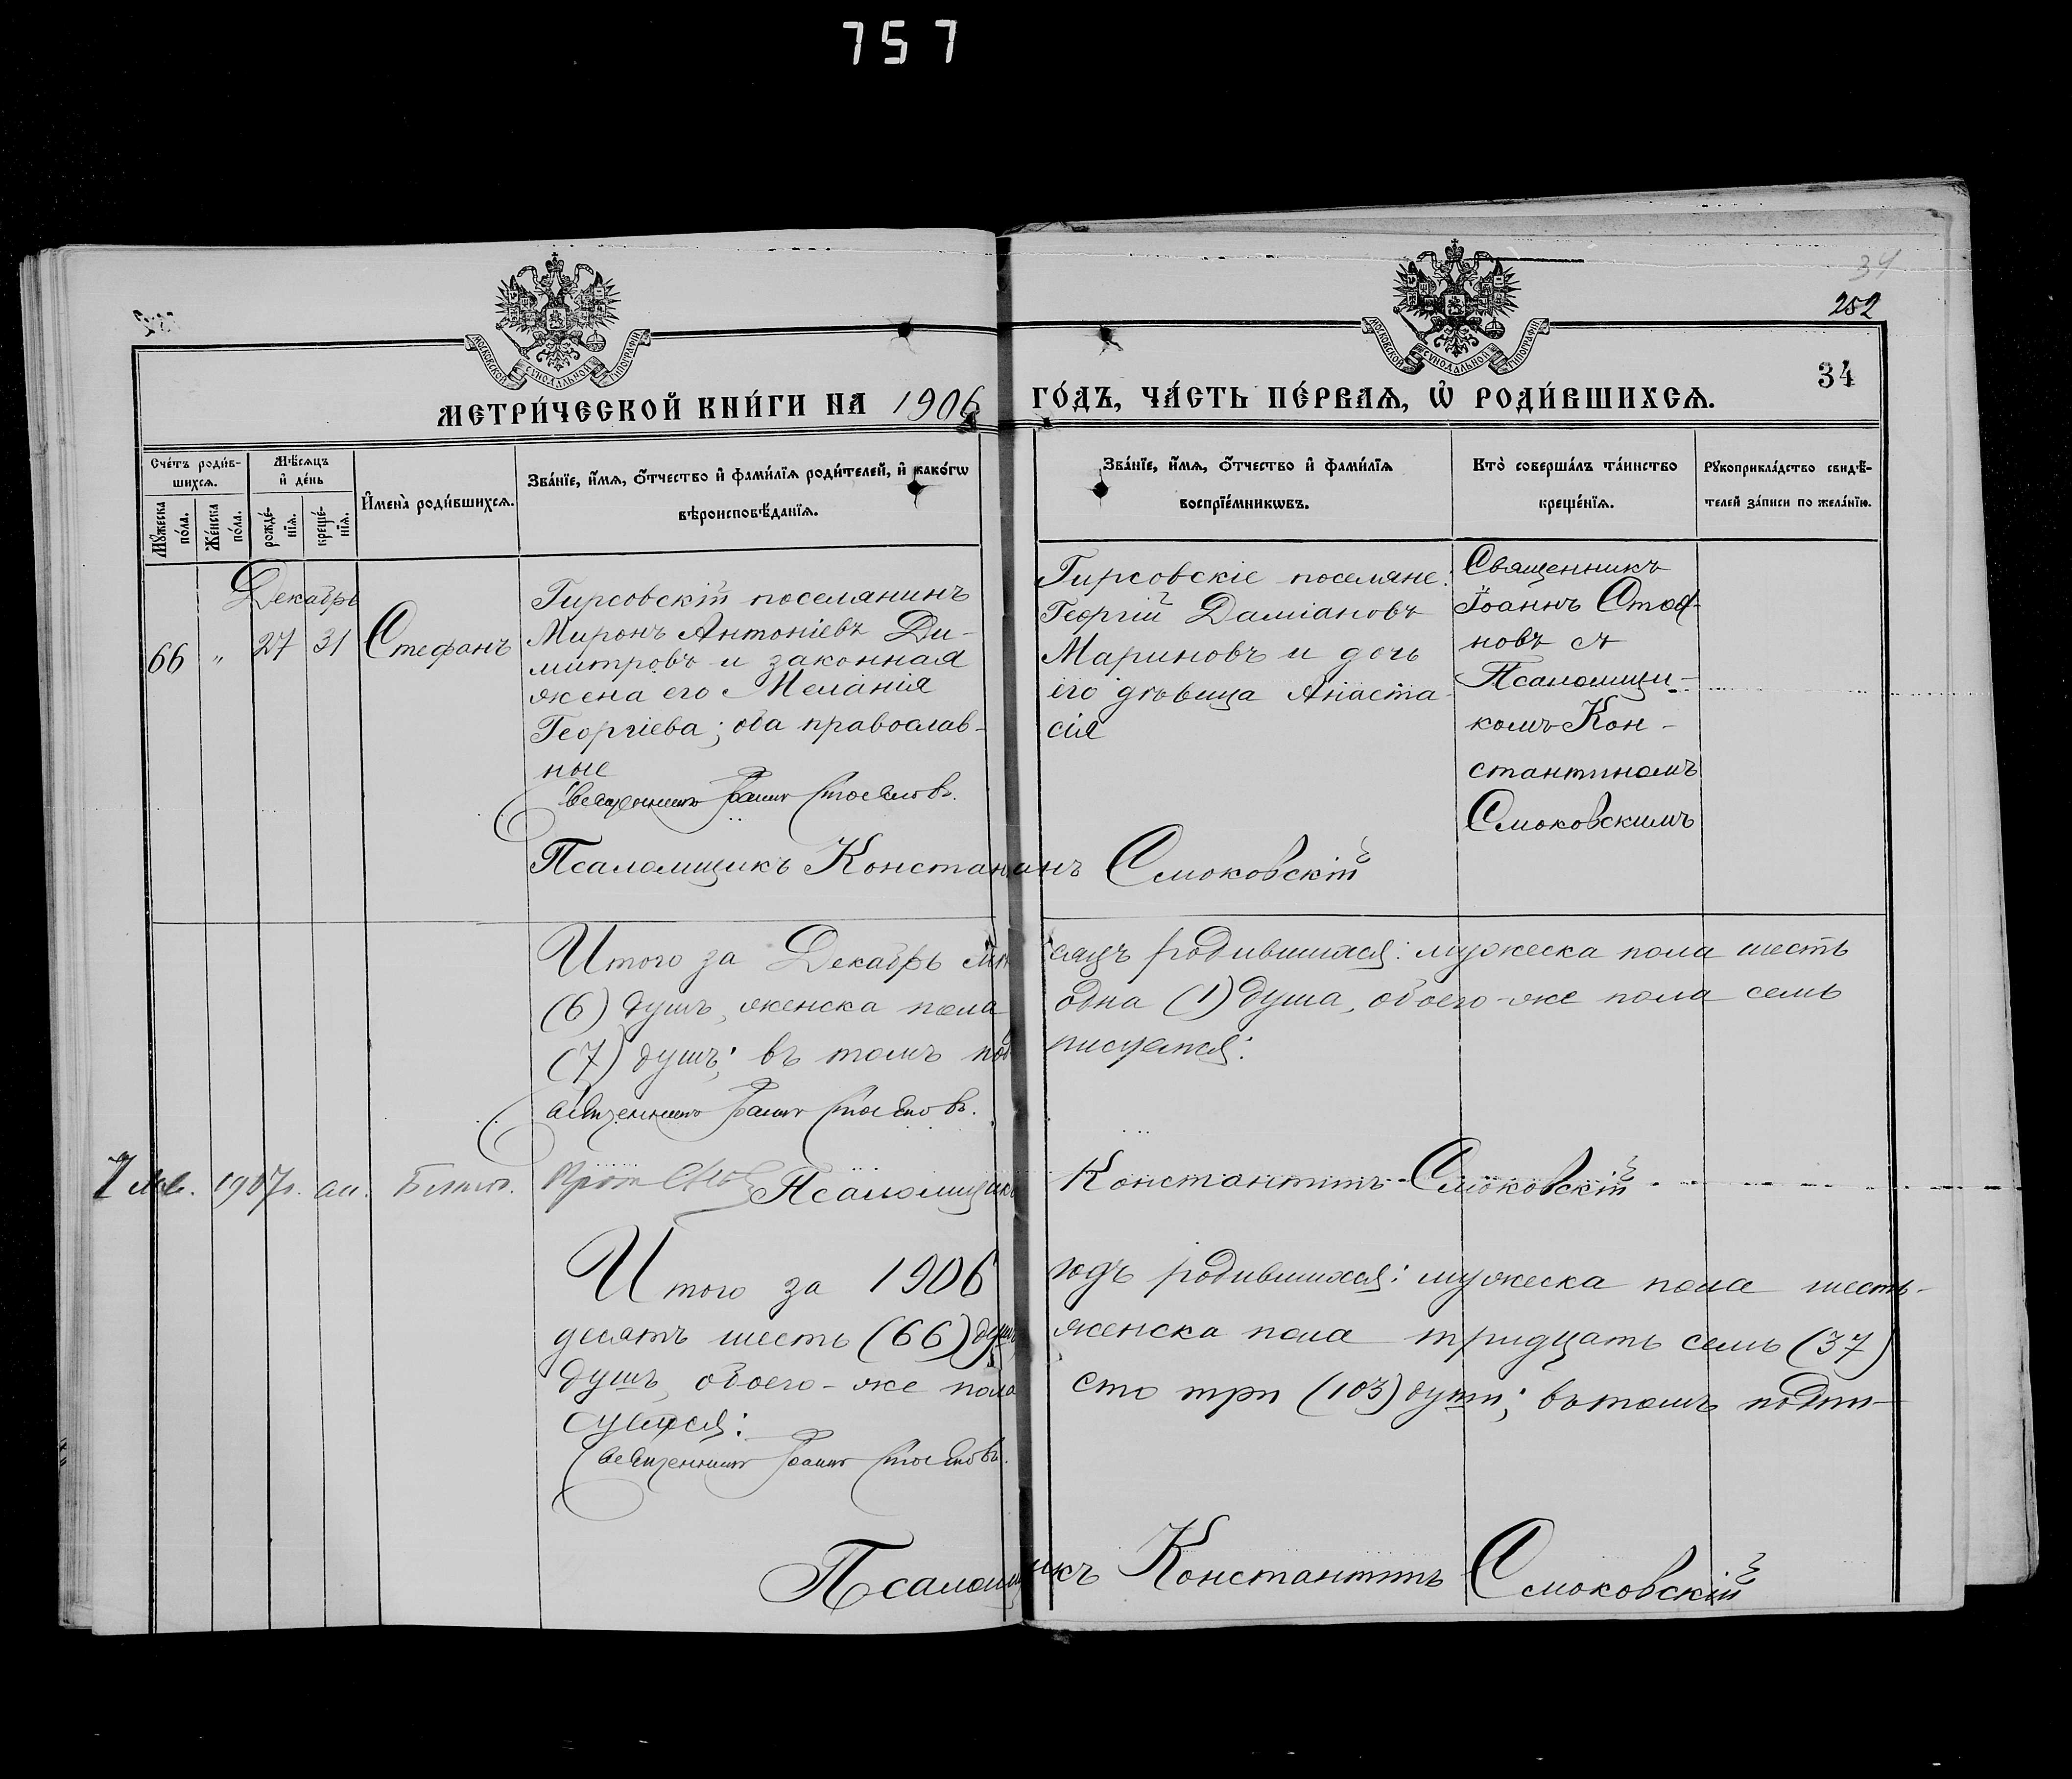 757
34
252
МОСКОВСКОЙ СУНОДАЛЬНОЙ ТИПОГРАФІИ
МОСКОВСКОЙ СУНОДАЛЬНОЙ ТИПОГРАФІИ
34
МЕТРИ́ЧЕСКОЙ КНИ́ГИ НА 1906 ГО́ДЪ, ЧА́СТЬ ПЕ́РВАѦ, Ѡ҆ РОДИ́ВШИХСѦ.
Сче́тъ роди́в-
шихсѧ.
Мꙋ́жеска по́ла.
Же́нска по́ла.
Мѣ́сѧцъ
и҆ де́нь
рожде́-
нїѧ.
креще́-
нїѧ.
И҆мена̀ роди́вшихсѧ.
Зва́нїе, и҆́мѧ, ѻ҆́тчество и҆ фами́лїѧ роди́телей, и҆ како́гѡ
вѣроисповѣ́данїѧ.
Зва́нїе, и҆́мѧ, ѻ҆́тчество и҆ фами́лїѧ
воспрїе́мникѡвъ.
Кто̀ соверша́лъ та́инство
креще́нїѧ.
Рꙋкоприкла́дство свидѣ́-
телей за́писи по жела́нїю.
Декабрь
66 " 27 31 Стефанъ
Гирсовскій поселянинъ
Миронъ Антоніевъ Ди-
митровъ и законная
жена его Меланія
Георгіева; оба православ-
ные
Священникъ Іоаннъ Стояновъ.
Псаломщикъ Константинъ Смоковскій
Гирсовскіе поселяне:
Георгій Даміановъ
Мариновъ и дочь
его дѣвица Анаста-
сія
Священникъ
Іоаннъ Стоя-
новъ съ
Псаломщи-
комъ Кон-
стантиномъ
Смоковскимъ
Итого за Декабрь мѣсяцъ родившихся: мужеска пола шесть
(6) душъ, женска пола одна (1) душа, обоего-же пола семь
(7) душъ; въ томъ подписуемся:
Священникъ Іоаннъ Стояновъ.
1907г.
Псаломщикъ Константинъ Смоковскій
Итого за 1906 годъ родившихся: мужеска пола шесть-
десятъ шесть (66) душъ, женска пола тридцать семь (37)
душъ, обоего-же пола сто три (103) души; въ томъ подпи-
суемся:
Священникъ Іоаннъ Стояновъ.
Псаломщикъ Константинъ Смоковскій